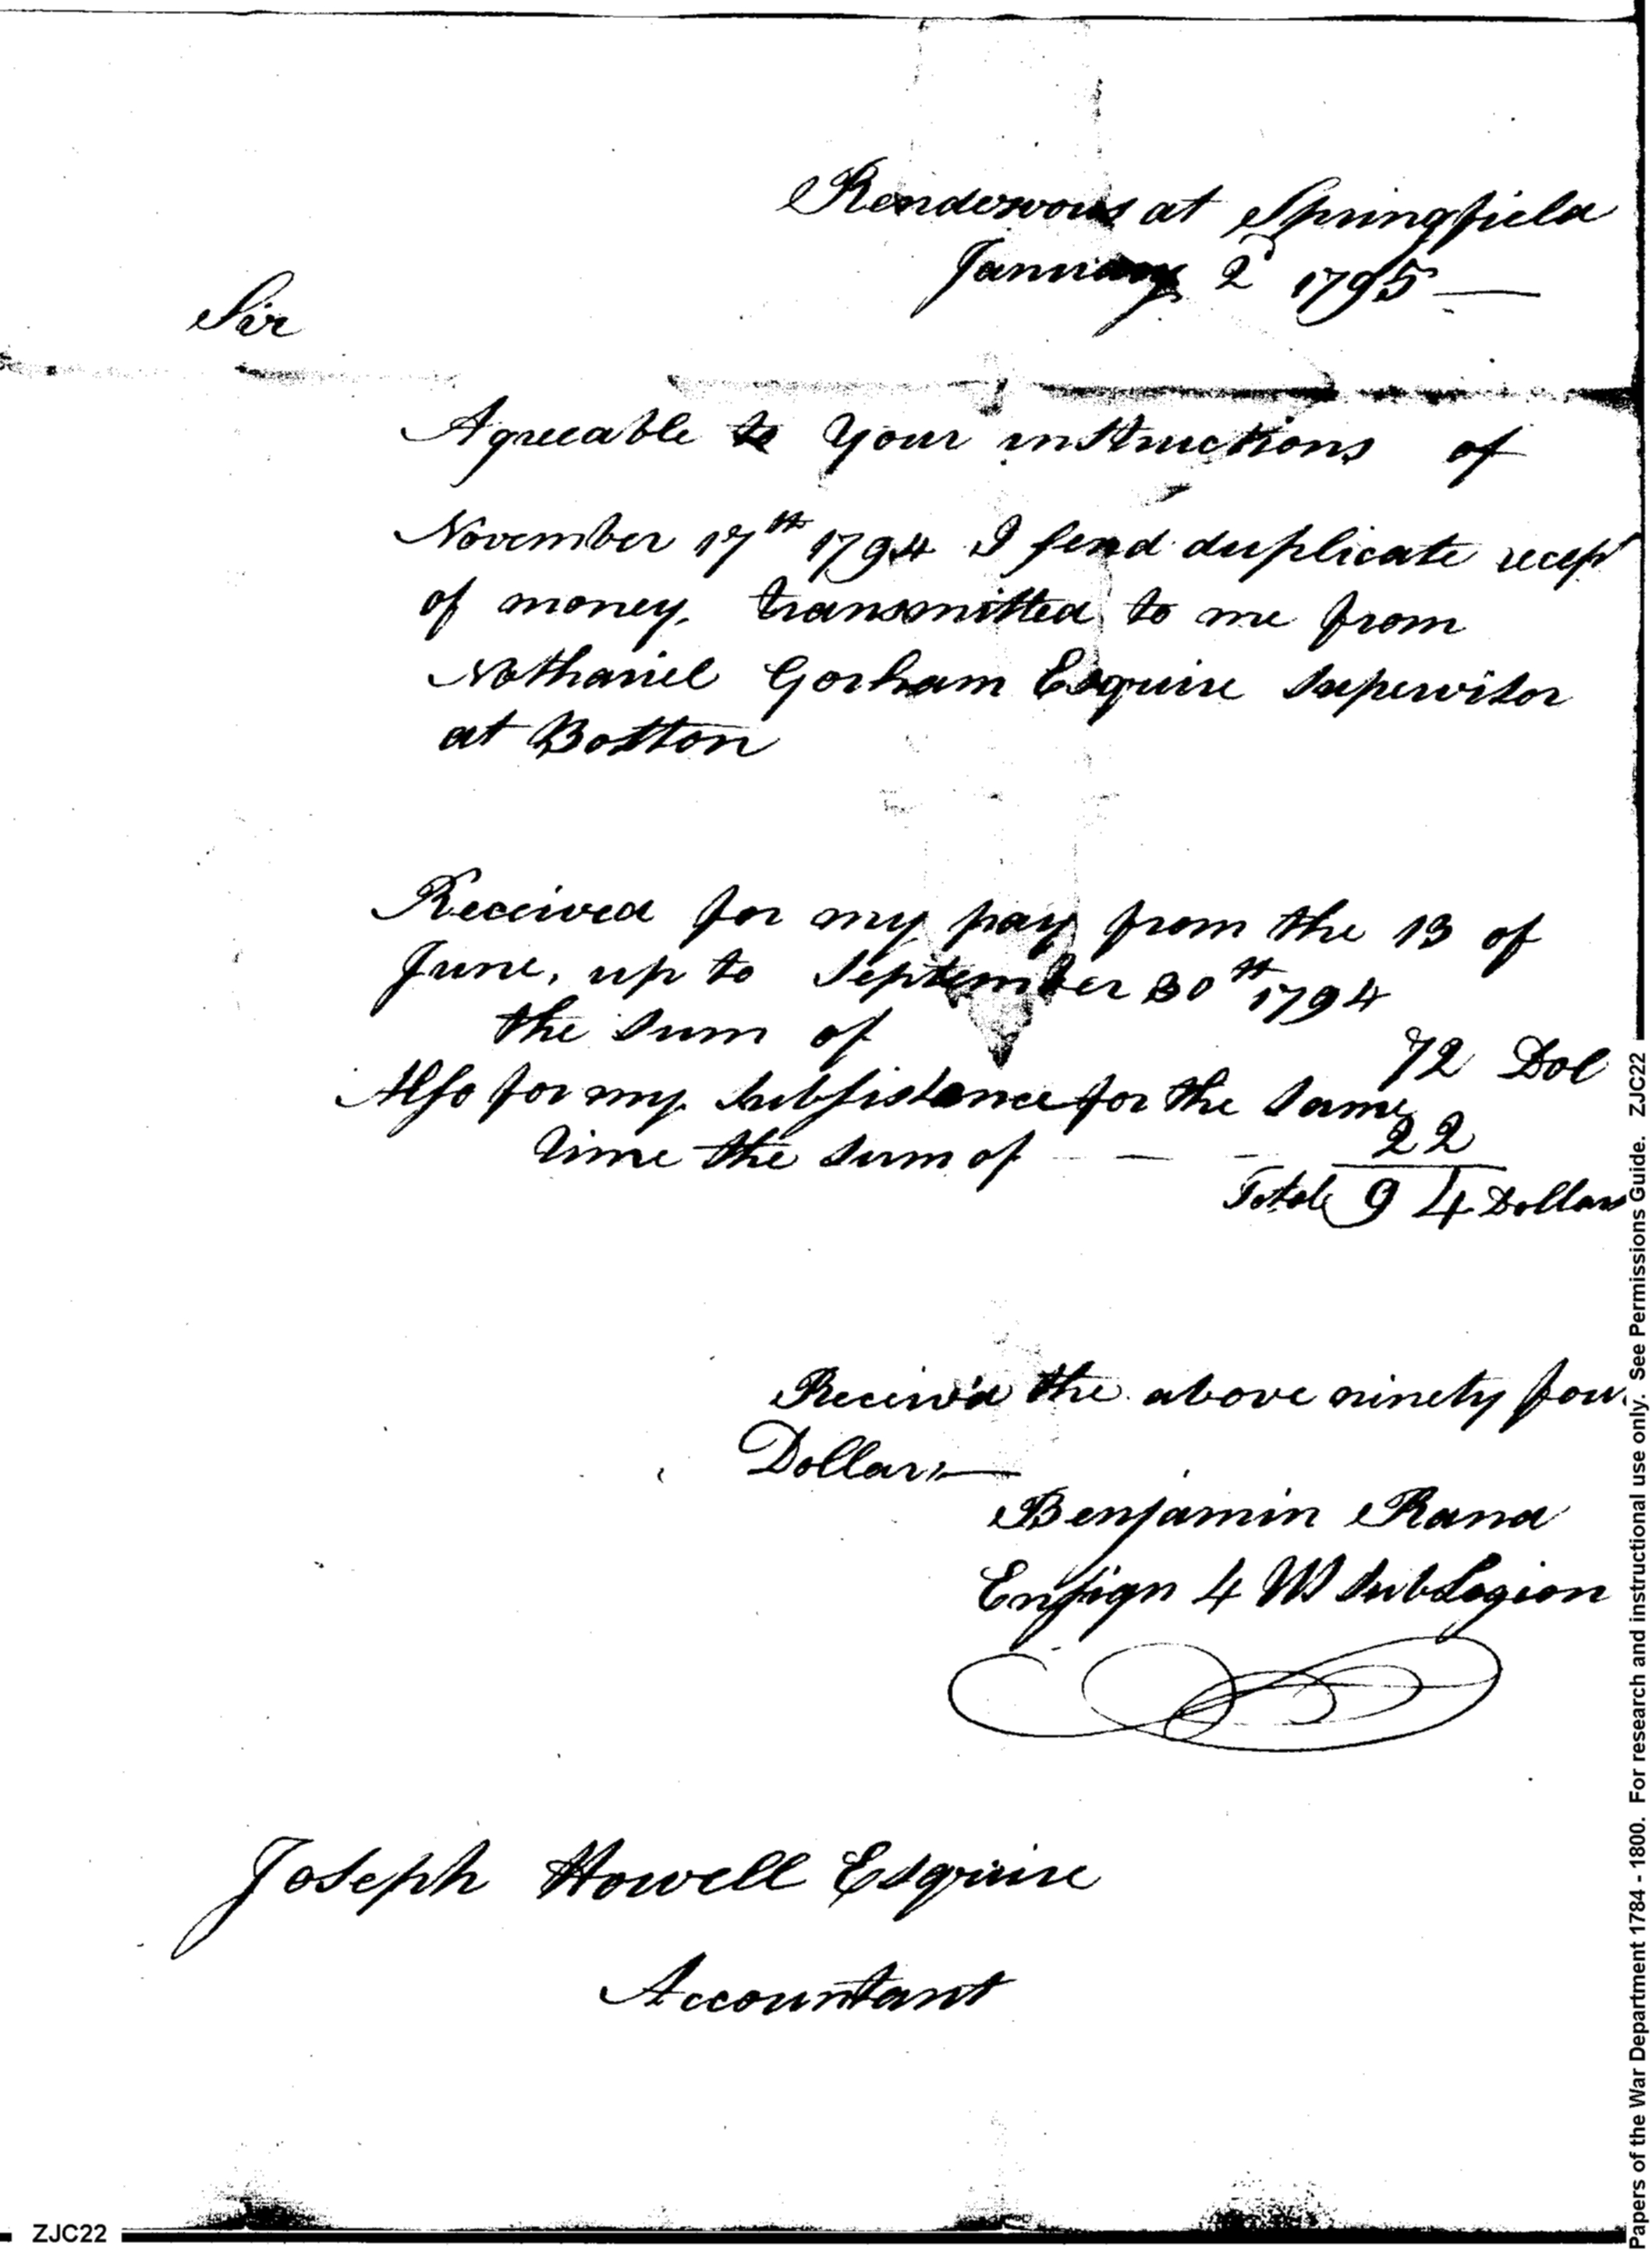 Rendezvous at Springfield
January 2d 1795
Sir
Agreeable to your instructions of
November 17th 1794 I send duplicate recept
of money, transmitted to me from
Nathaniel Gorham Esquire Supervisor
at Boston
Received for my pay from the 13 of
June, up to September 30th 1794
the sum of 72 Dol
Also for my Subsistence for the same
time the sum of - - - 22
Total 94 Dollars
Receiv'd the above ninety four
Dollars
Benjamin Rand
Ensign 4 US SubLegion
Joseph Howell Esquire
Accountant
ZJC22
Papers of the War Department 1784 - 1800. For research and instructional use only. See Permissions Guide. ZJC22